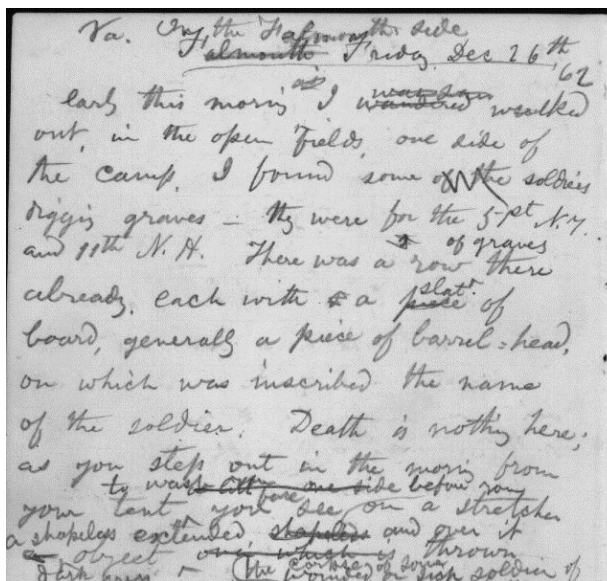 Va. On the Falmouth side
Falmouth Friday Dec 26th '62
early this mornig as I walked
out, in the open fields, one side of
the camp, I found some of the soldiers
diggig graves – they were for the 51st N.Y.
and 11th N.H. There was a row of graves there
already, each with a slat of
board, generally a piece of barrel-head,
on which was inscribed the name
of the soldier. Death is nothing here;
as you step out in the mornig from
to wash before you
your tent you see on a stretcher
a shapeless extended, and over it
object is thrown
dark grey the corpse of some
wounded or sick soldier of